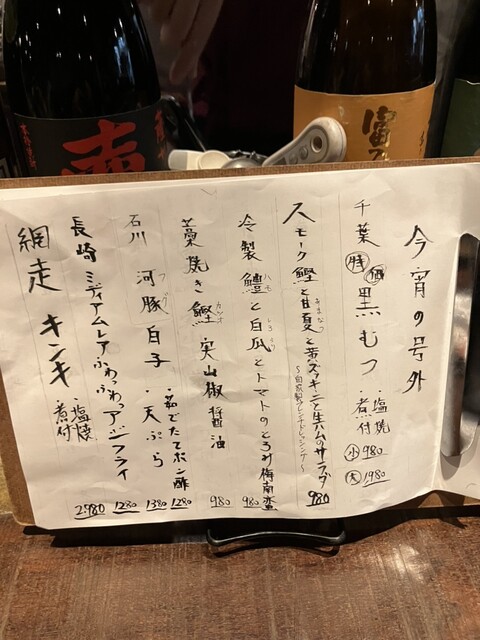 今宵の号外
千葉 特価 黒むつ ・塩焼 ・煮付 小 980 大 1980
スモーク鰹と甘夏と黄ズッキーニと生ハムのサラダ 980
あまなつ
〜自家製フレンチドレッシング〜
冷製 鱧と白瓜とトマトのとろみ梅南蛮 980
ハモ
しろうり
藁焼き 鰹 実山椒醤油 980
カツオ
石川 河豚白子 ・茹でたてポン酢 1280
フグ
・天ぷら 1380
長崎 ミディアムレアふわっふわっアジフライ 1280
網走 キンキ ・塩焼 ・煮付 2980
富